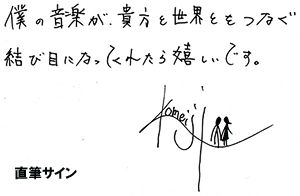 僕の音楽が、貴方と世界とをつなぐ
結び目になってくれたら嬉しいです。
Komeiji
直筆サイン